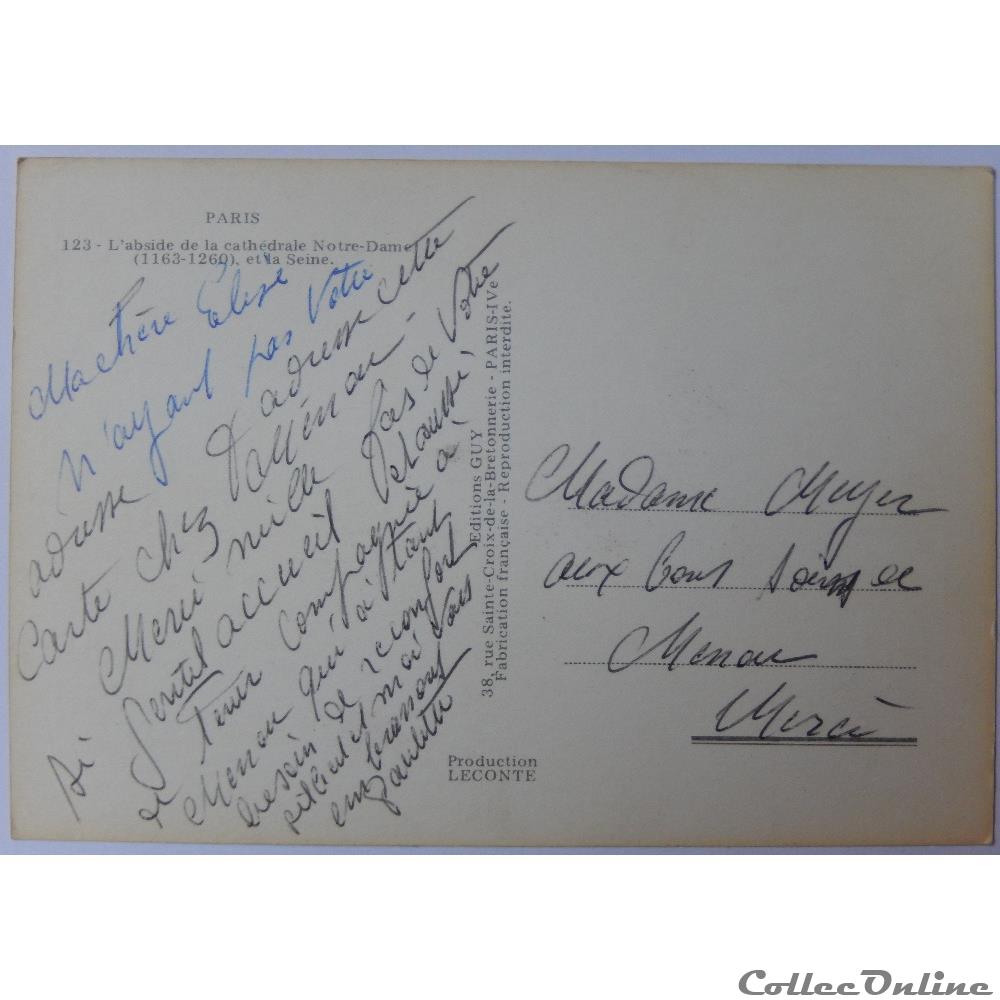 PARIS
123 - L'abside de la cathédrale Notre-Dame
(1163-1260), et la Seine.
Ma chère Elise
n'ayant pas Votre
adresse J'adresse cette
Carte chez Menou.
Merci mille fois de Votre
si gentil accueil
et Tenir compagnie à
Menou qui a tant
besoin de réconfort
et moi Vous
embrassons
paulette
Editions GUY
38, rue Sainte-Croix-de-la-Bretonnerie - PARIS-IVe
Fabrication française - Reproduction interdite.
Production
LECONTE
Madame Meyer
aux bons soins de
Menou
Merci
CollecOnline